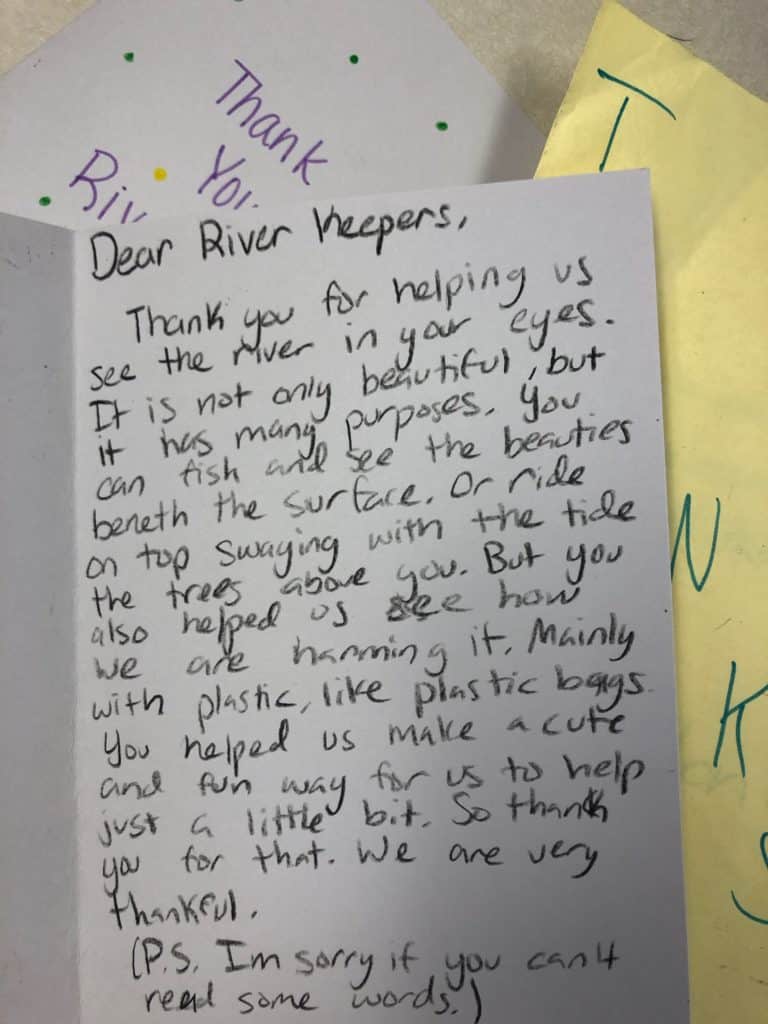 Thank
You
Riv
T
N
K
S
Dear River Keepers,
Thank you for helping us
see the river in your eyes.
It is not only beautiful, but
it has many purposes. You
can fish and see the beauties
beneth the surface. Or ride
on top swaying with the tide
the trees above you. But you
also helped us see how
we are harming it. Mainly
with plastic, like plastic bags.
You helped us make a cute
and fun way for us to help
just a little bit. So thank
you for that. We are very
thankful.
(P.S. Im sorry if you can't
read some words.)